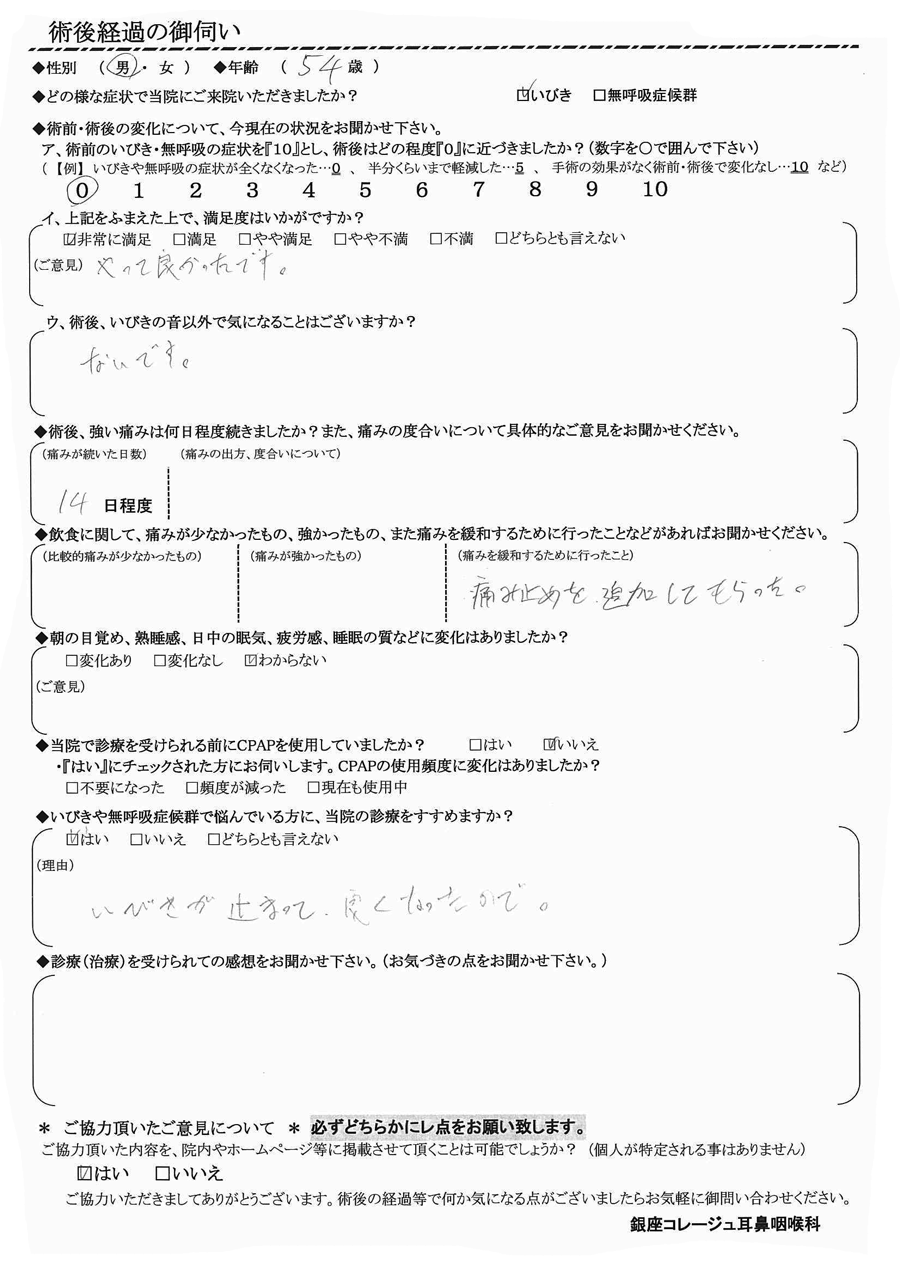 術後経過の御伺い
◆性別 （ 男 ・ 女 ） ◆年齢 （ 54 歳 ）
◆どの様な症状で当院にご来院いただきましたか？ ☑いびき □無呼吸症候群
◆術前・術後の変化について、今現在の状況をお聞かせ下さい。
ア、術前のいびき・無呼吸の症状を『10』とし、術後はどの程度『0』に近づきましたか？（数字を○で囲んで下さい）
（【例】 いびきや無呼吸の症状が全くなくなった…0 、 半分くらいまで軽減した…5 、 手術の効果がなく術前・術後で変化なし…10 など）
0 1 2 3 4 5 6 7 8 9 10
イ、上記をふまえた上で、満足度はいかがですか？
☑非常に満足 □満足 □やや満足 □やや不満 □不満 □どちらとも言えない
（ご意見） やって良かったです。
ウ、術後、いびきの音以外で気になることはございますか？
ないです。
◆術後、強い痛みは何日程度続きましたか？また、痛みの度合いについて具体的なご意見をお聞かせください。
（痛みが続いた日数） （痛みの出方、度合いについて）
14 日程度
◆飲食に関して、痛みが少なかったもの、強かったもの、また痛みを緩和するために行ったことなどがあればお聞かせください。
（比較的痛みが少なかったもの） （痛みが強かったもの） （痛みを緩和するために行ったこと）
痛み止めを追加してもらった。
◆朝の目覚め、熟睡感、日中の眠気、疲労感、睡眠の質などに変化はありましたか？
□変化あり □変化なし ☑わからない
（ご意見）
◆当院で診療を受けられる前にCPAPを使用していましたか？ □はい ☑いいえ
・『はい』にチェックされた方にお伺いします。CPAPの使用頻度に変化はありましたか？
□不要になった □頻度が減った □現在も使用中
◆いびきや無呼吸症候群で悩んでいる方に、当院の診療をすすめますか？
☑はい □いいえ □どちらとも言えない
（理由）
いびきが止まって、良くなったので。
◆診療（治療）を受けられての感想をお聞かせ下さい。（お気づきの点をお聞かせ下さい。）
＊ ご協力頂いたご意見について ＊ 必ずどちらかにレ点をお願い致します。
ご協力頂いた内容を、院内やホームページ等に掲載させて頂くことは可能でしょうか？ （個人が特定される事はありません）
☑はい □いいえ
ご協力いただきましてありがとうございます。術後の経過等で何か気になる点がございましたらお気軽に御問い合わせください。
銀座コレージュ耳鼻咽喉科